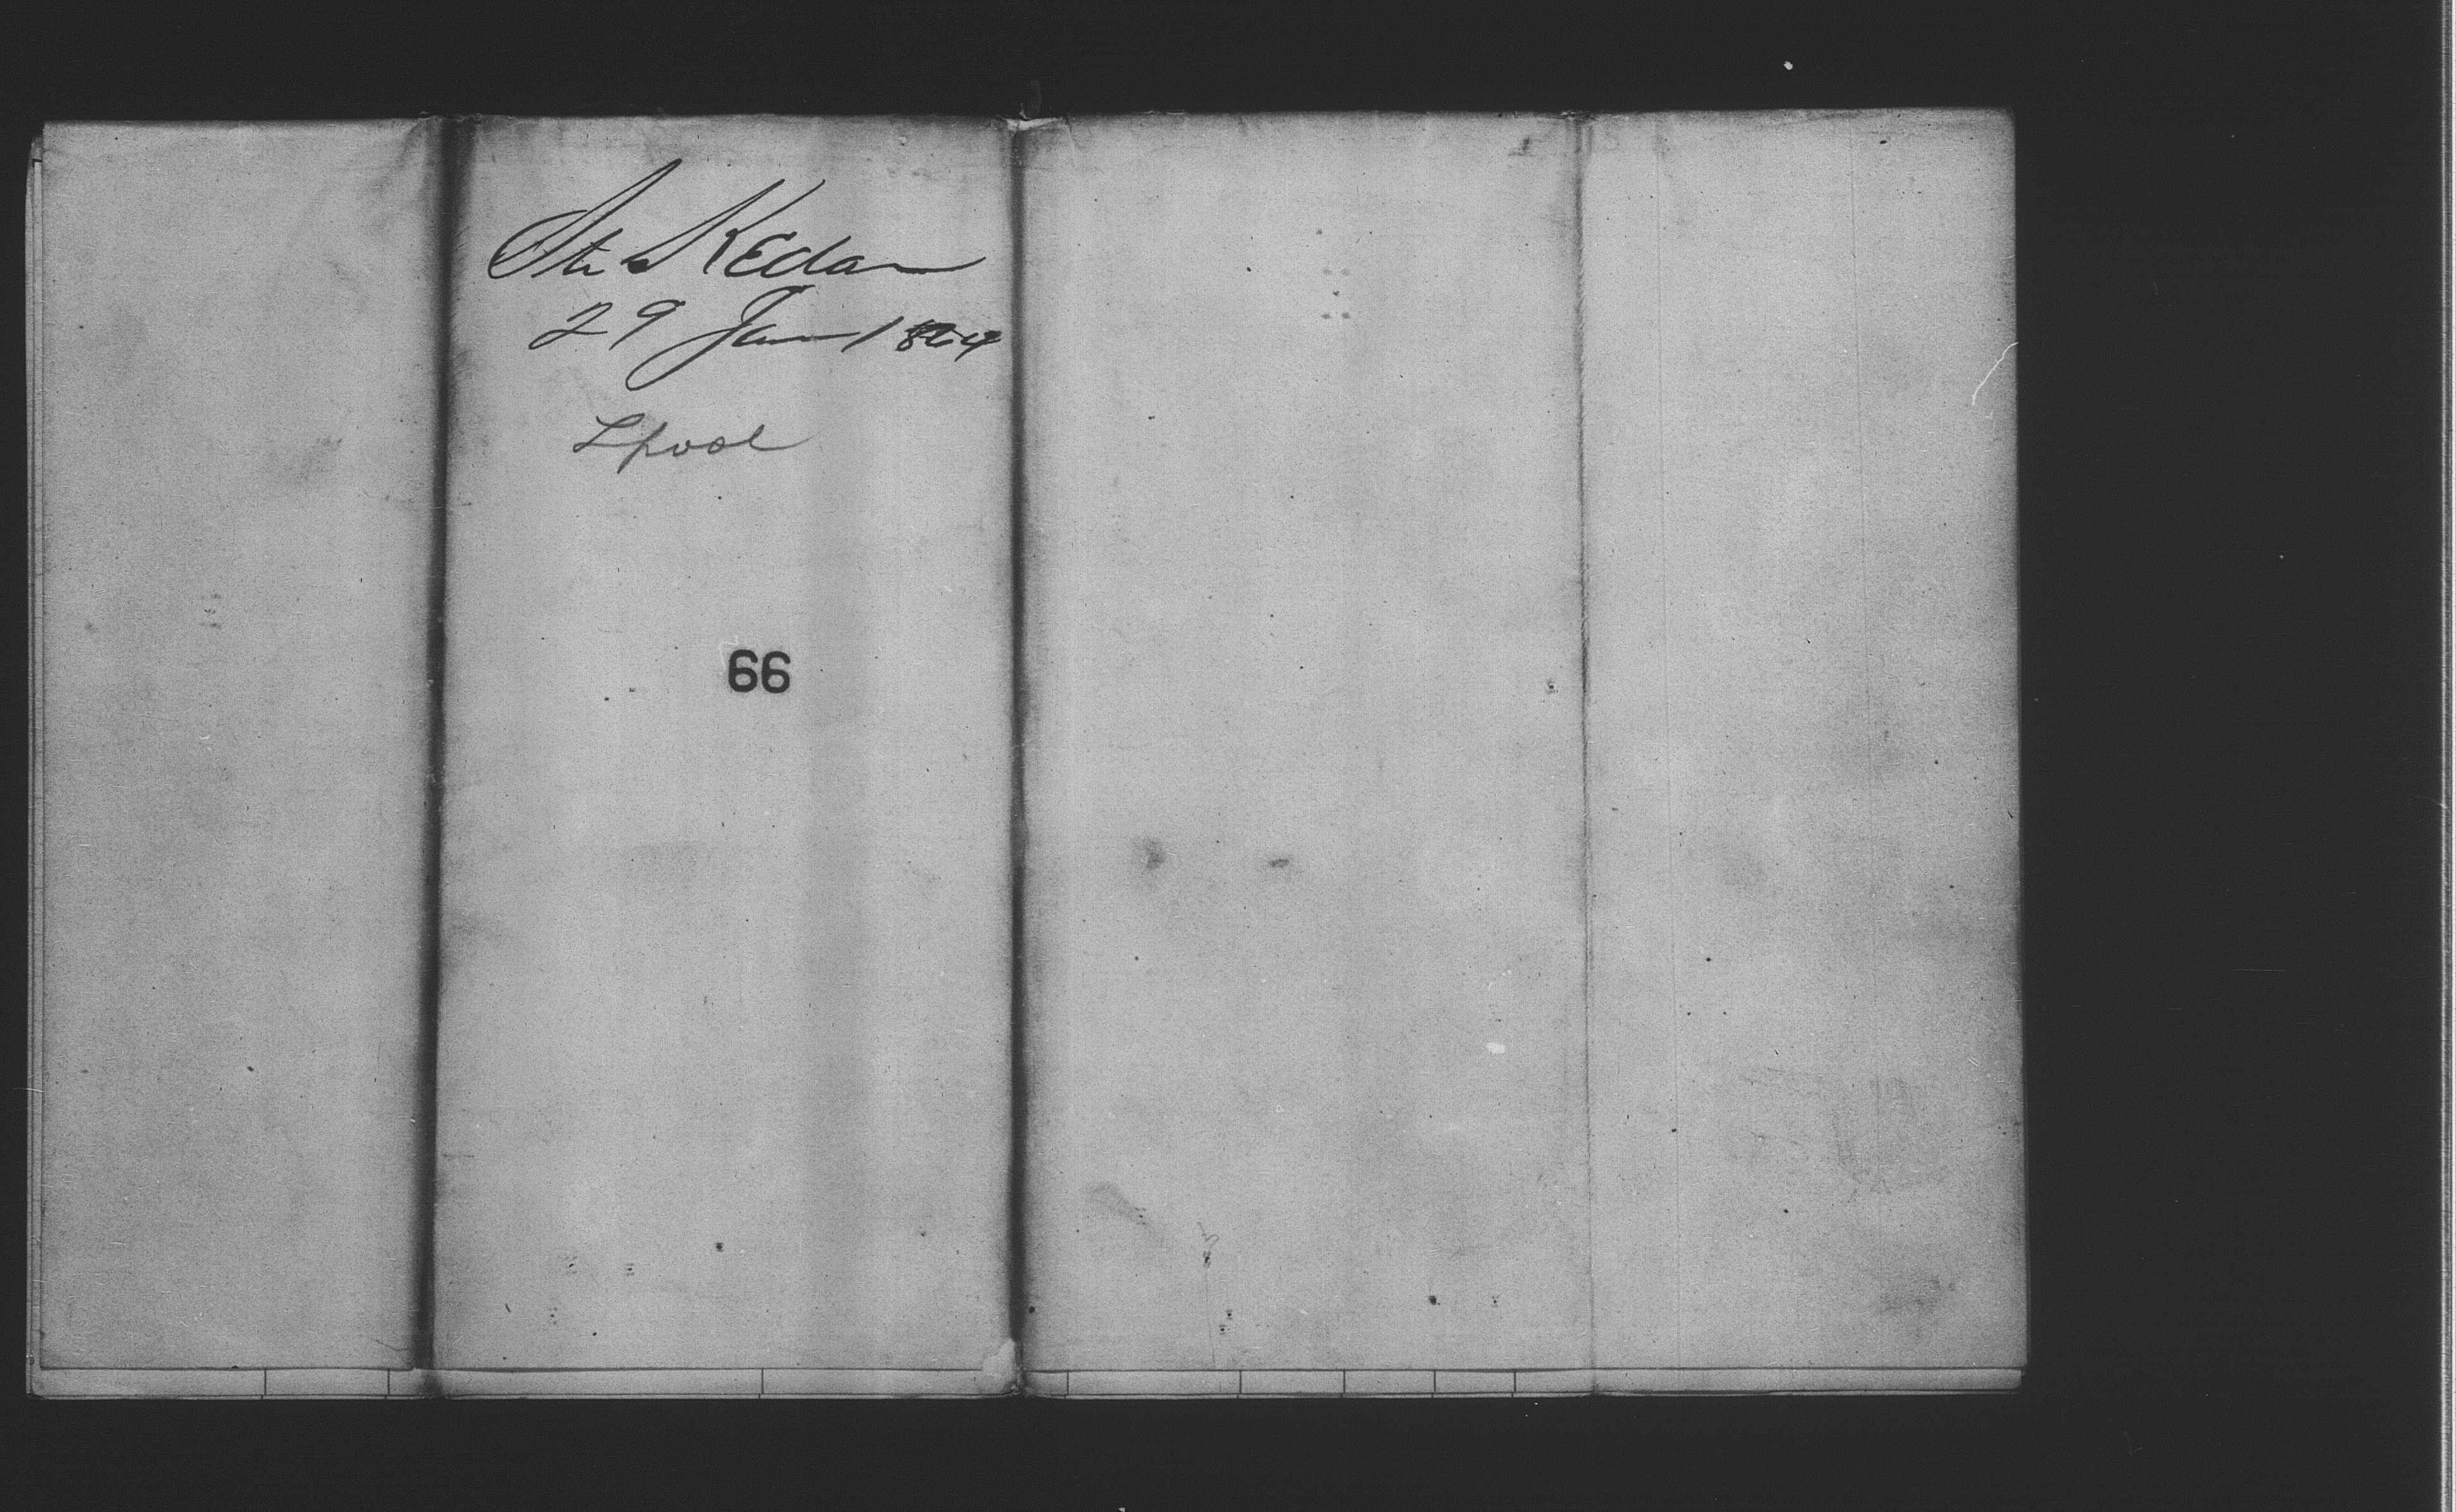 Str Kedar
29 Jan 1864
Lpool
66